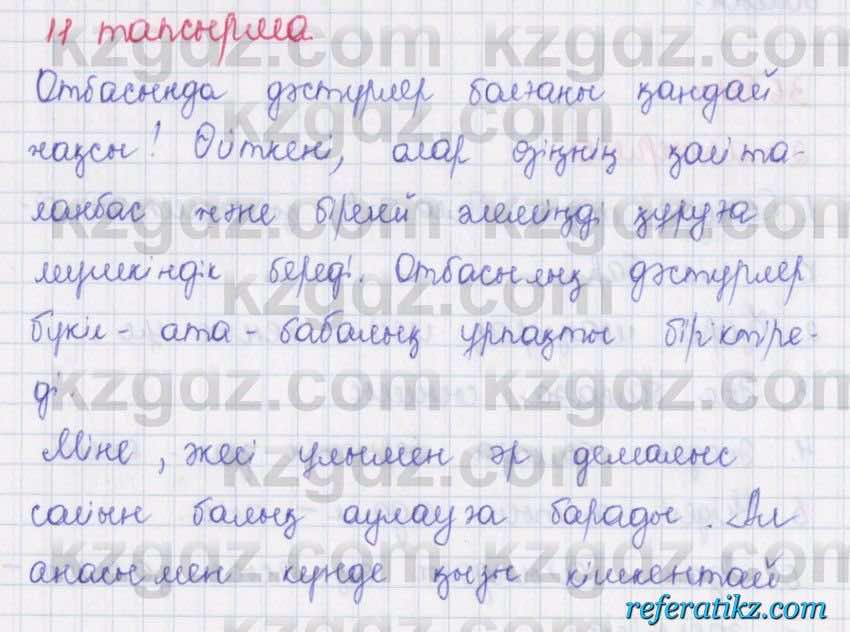 11 тапсырма.
Отбасында дәстүрлер болғаны қандай
жақсы! Өйткені, олар өзіңнің қайта-
ланбас және бірегей әлеміңді құруға
мүмкіндік береді. Отбасылық дәстүрлер
бүкіл-ата-бабалық ұрпақты біріктіре-
ді.
Міне, әкесі ұлымен әр демалыс
сайын балық аулауға барады. Ал
анасымен күнде қызы кішкентай
kzgdz.com
referatikz.com